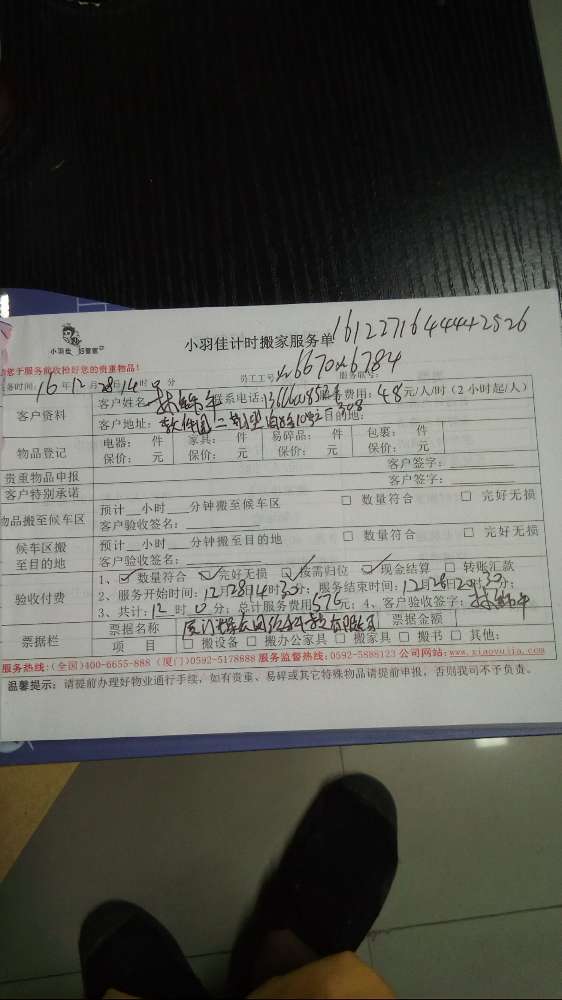 小羽佳 好管家
小羽佳计时搬家服务单 161227164444+2526
请您于服务前收捡好您的贵重物品! 员工工号: 26670 26784 服务账号:
服务时间: 16 年 12 月 28 日 14 时 分
客户资料 客户姓名: 联系电话: 服务费用: 48 元/人/时 (2 小时起/人)
客户地址: 软件园二期 目的地: 308
物品登记 电器: 件 家具: 件 易碎品: 件 包裹: 件
保价: 元 保价: 元 保价: 元 保价: 元
贵重物品申报 客户签字:
客户特别承诺 客户签字:
物品搬至候车区 预计__小时__分钟搬至候车区 □ 数量符合 □ 完好无损
客户验收签名:
候车区搬至目的地 预计__小时__分钟搬至目的地 □ 数量符合 □ 完好无损
客户验收签名:
验收付费 1、☑ 数量符合 ☑ 完好无损 ☑ 按需归位 ☑ 现金结算 □ 转账汇款
2、服务开始时间: 12月28日14时30分; 服务结束时间: 12月28日20时30分;
3、共计: 12 时 0 分; 总计服务费用 576 元; 4、客户验收签字:
票据栏 票据名称 厦门 网络科技有限公司 票据金额
项 目 □ 搬设备 □ 搬办公家具 □ 搬家具 □ 搬书 □ 其他:
服务热线: (全国)400-6655-888 (厦门)0592-5178888 服务监督热线: 0592-5888123 公司网站: www.xiaoyujia.com
温馨提示: 请提前办理好物业通行手续, 如有贵重、易碎或其它特殊物品请提前申报, 否则我司不予负责。